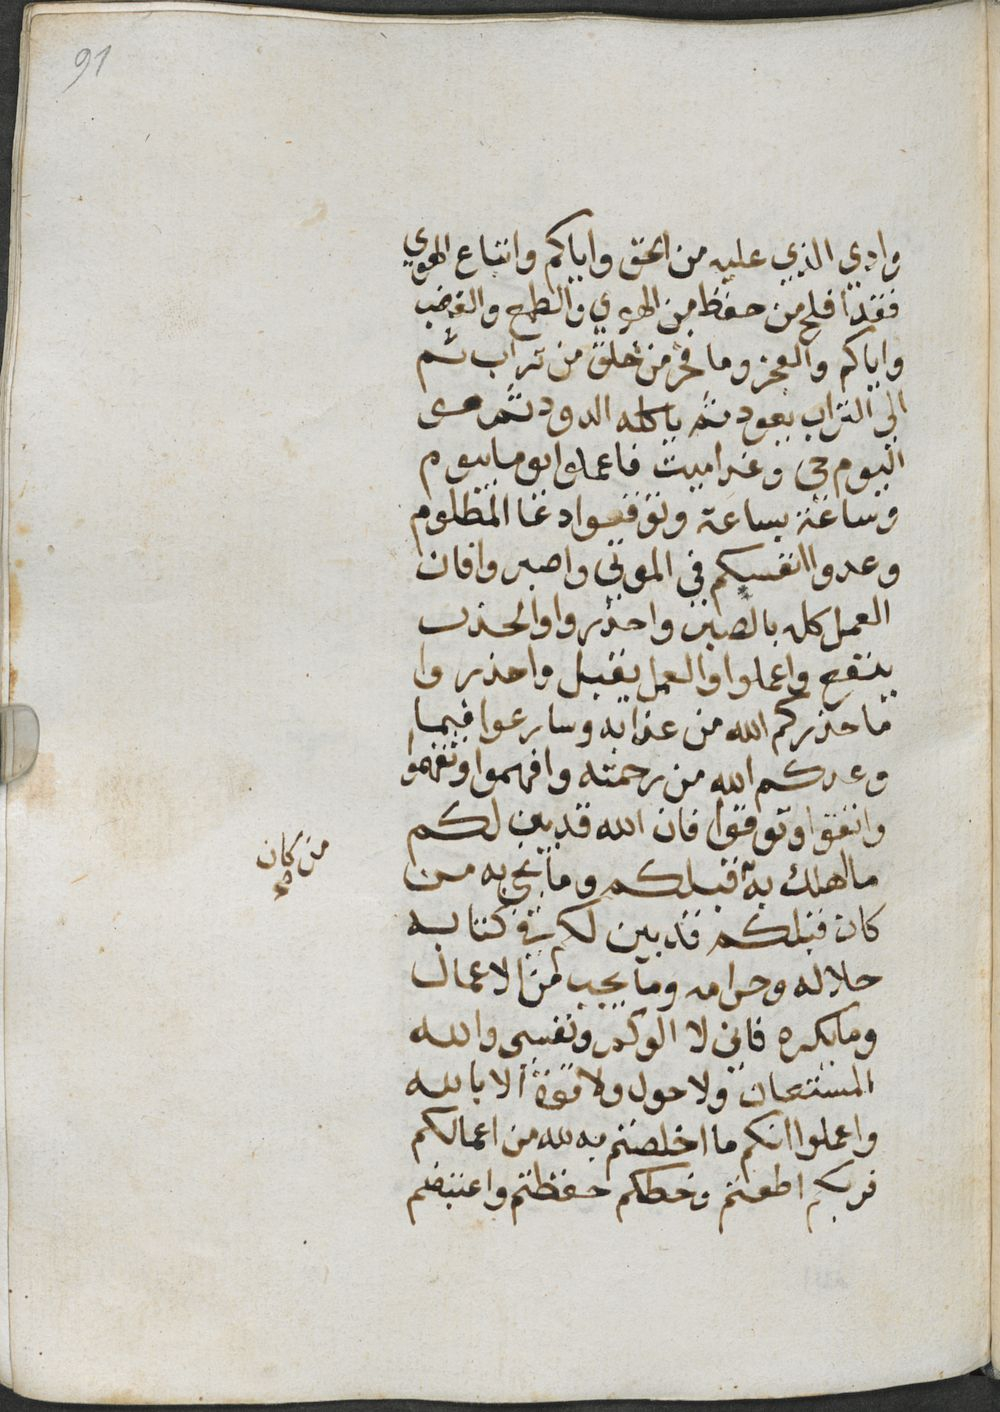 91
وادي الذي عليه من الحق واياكم واتباع الهوي
فقد افلح من حفظ من الهوي والطمع والغضب
واياكم والفخر وما فخر من خلق من تراب ثم
الى التراب يعود ثم ياكله الدود ثم هو
اليوم حي وغدا ميت فاعملوا يوما بيوم
وساعة بساعة وتوقفوا دعا المظلوم
وعدوا انفسكم في الموتي واصبروا فان
العمل كله بالصبر واحذروا والحذر
ينفع واعملوا والعمل يقبل واحذروا
ما حذركم الله من عذابه وسارعوا فيما
وعدكم الله من رحمته وافهموا وتفهموا
واتقوا وتوقوا فان الله قد بين لكم
ما اهلك به قبلكم وما نجي به من
من كان
كان قبلكم قد بين لكم في كتابه
حلاله وحرامه وما يجب من الاعمال
وما يكره فاني لا الوكم ونفسي والله
المستعان ولا حول ولا قوة الا بالله
واعملوا انكم ما اخلصتم به لله من اعمالكم
فربكم اطعتم وحظكم حفظتم واغتبطتم